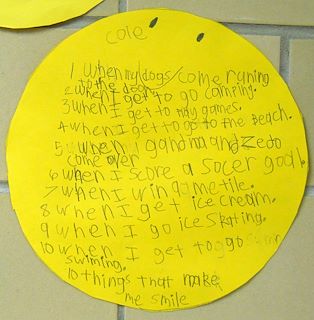 cole
1 when my dogs come runing
to the door.
2 when I get to go camping.
3 when I get to play games.
4 when I get to go to the Beach.
5 when grandma and Zedo
come over
6 when I score a socer goal.
7 when I win game tile.
8 when I get ice cream.
9 when I go ice skating.
10 when I get to go
swiming.
10 things that make
me smile